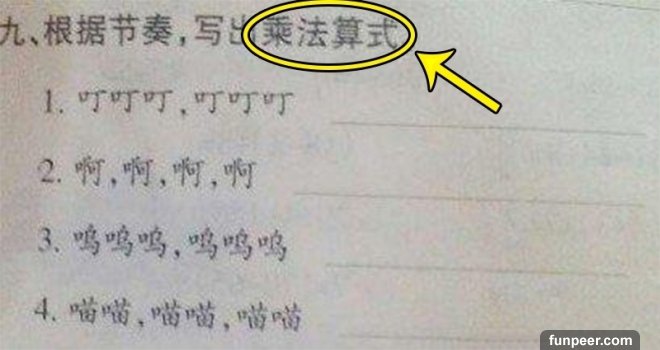 九、根据节奏,写出乘法算式
1. 叮叮叮,叮叮叮
2. 啊,啊,啊,啊
3. 呜呜呜,呜呜呜
4. 喵喵,喵喵,喵喵
funpeer.com